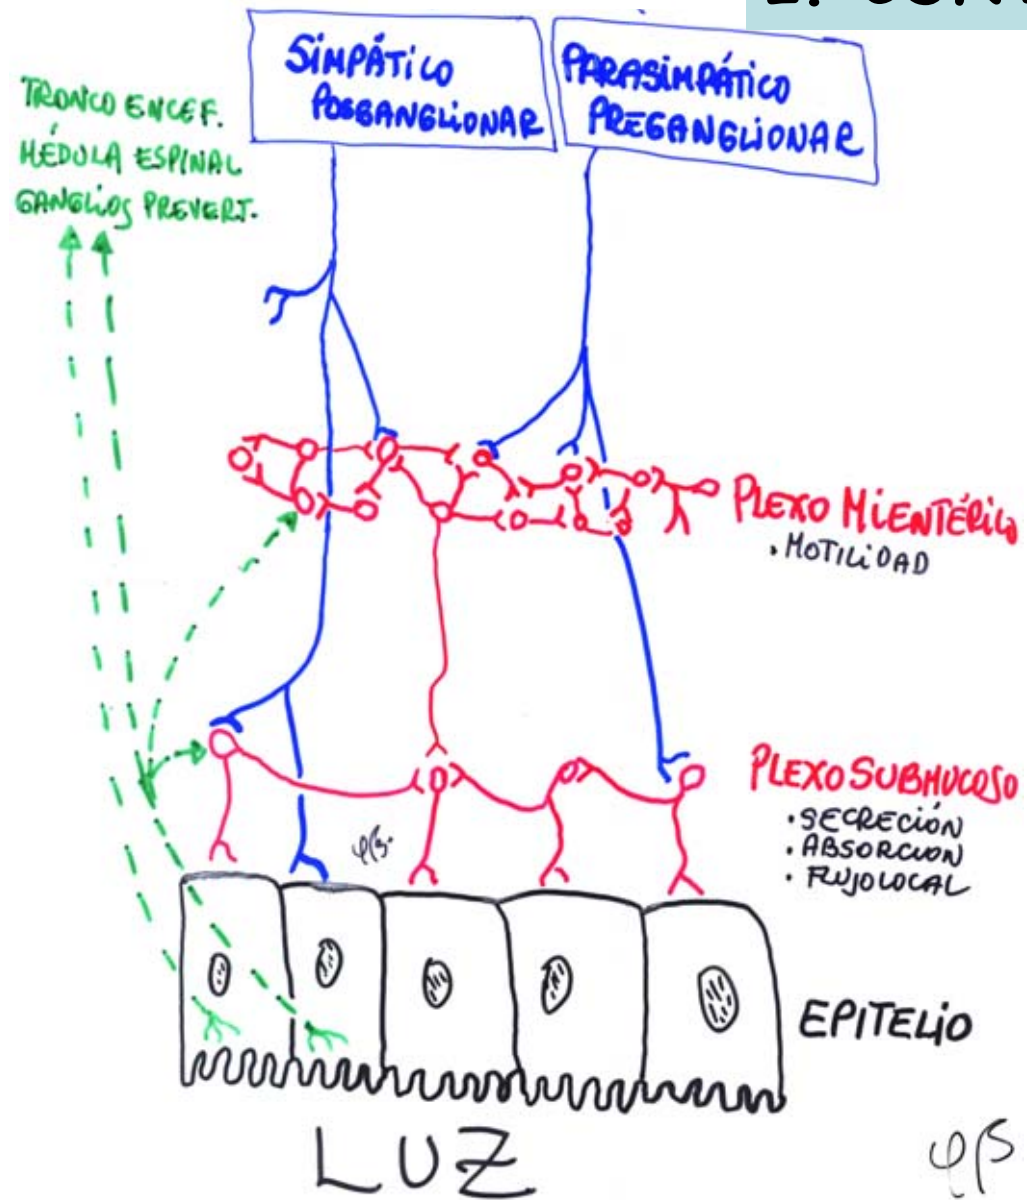 SIMPÁTICO
POSGANGLIONAR
PARASIMPÁTICO
PREGANGLIONAR
TRONCO ENCEF.
MÉDULA ESPINAL
GANGLIOS PREVERT.
PLEXO MIENTÉRICO
• MOTILIDAD
PLEXO SUBMUCOSO
• SECRECIÓN
• ABSORCION
• FLUJO LOCAL
EPITELIO
LUZ